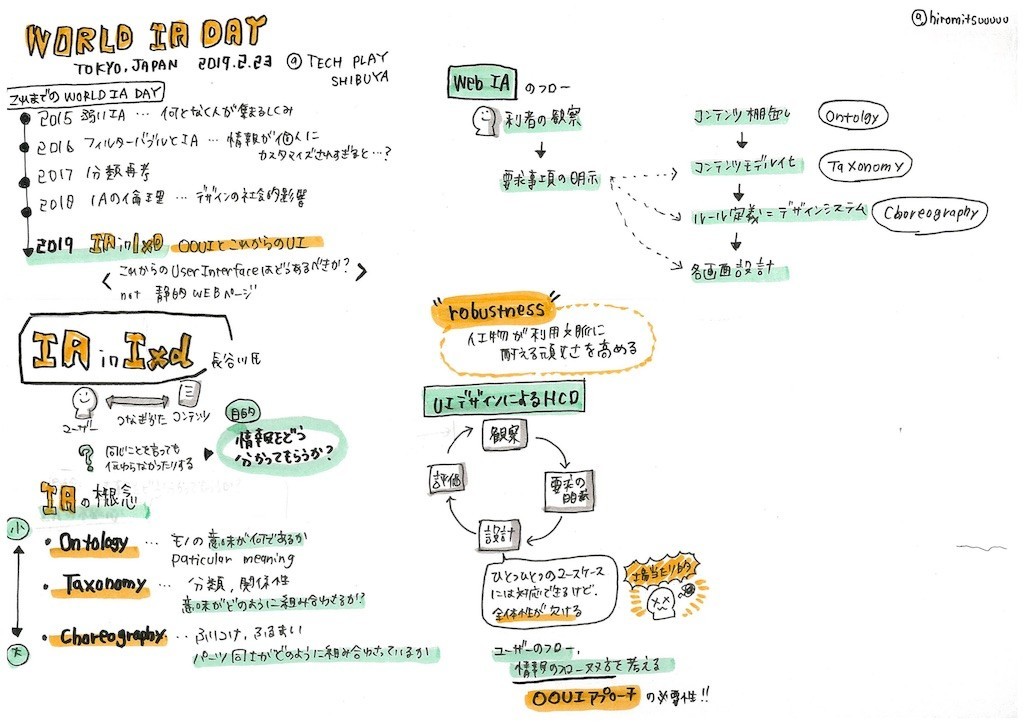 @hiromitsuuuuu
WORLD IA DAY
TOKYO, JAPAN 2019.2.23 @TECH PLAY
SHIBUYA
これまでの WORLD IA DAY
2015 弱いIA … 何となく人が集まるしくみ
2016 フィルターバブルとIA … 情報が個人に
カスタマイズされすぎると…?
2017 分類再考
2018 IAの倫理 … デザインの社会的影響
2019 IA in IxD OOUIとこれからのUI
これからのUser Interfaceはどうあるべきか?
not 静的WEBページ
IA in Ixd 長谷川氏
ユーザー つなぎかた コンテンツ
? 同じことを言っても
伝わらなかったりする
目的
情報をどう
分かってもらうか?
IAの概念
小
・Ontology … モノの意味が何であるか
paticular meaning
・Taxonomy … 分類,関係性
意味がどのように組み合わせるか?
・Choreography … ふりつけ,ふるまい
パーツ同士がどのように組み合わさっているか
大
Web IA のフロー
利者の観察
要求事項の明示
コンテンツ棚卸し Ontolgy
コンテンツモデル化 Taxonomy
ルール定義=デザインシステム Choreography
各画面設計
"robustness"
人工物が利用文脈に
耐える頑丈さを高める
UIデザインによるHCD
観察
要求の
明示
設計
評価
ひとつひとつのユースケース
には対応できるけど、
全体性が欠ける
場当たり的
ユーザーのフロー、
情報のフロー双方を考える
OOUIアプローチ の必要性!!